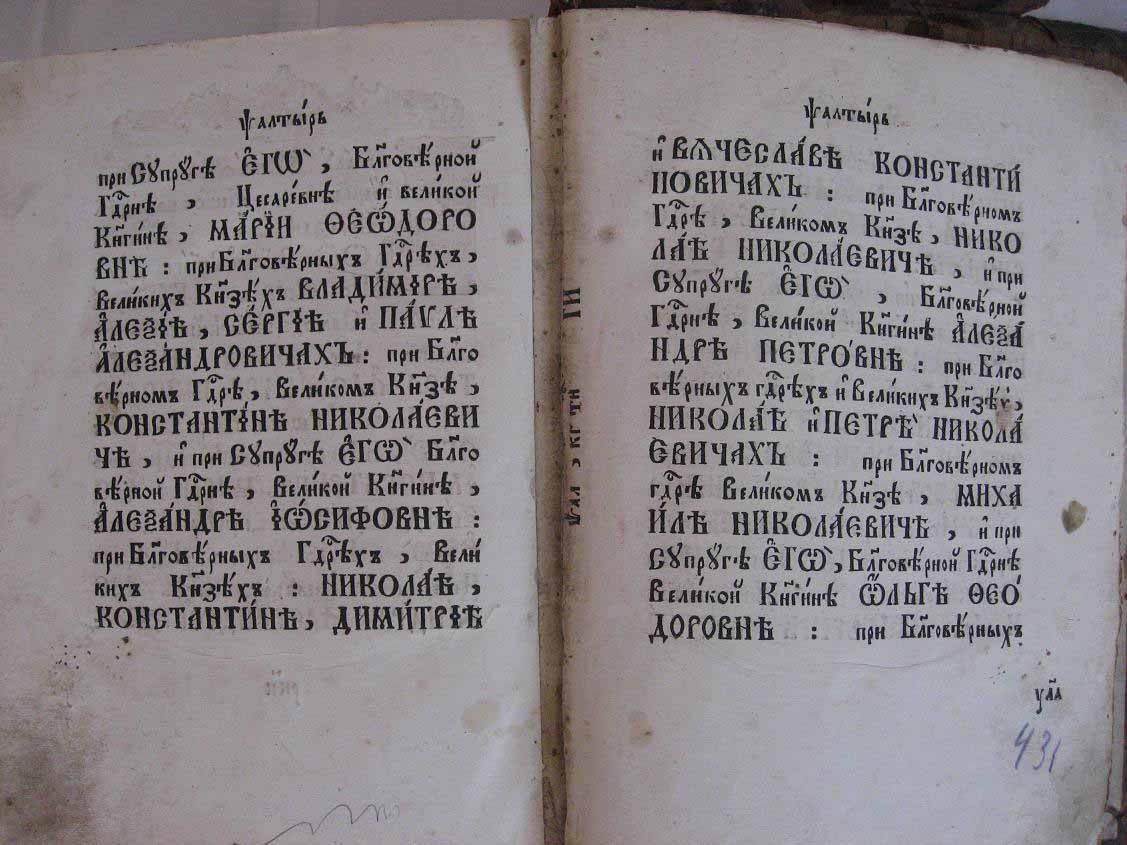 Ѱалтырь
при Сꙋпрꙋгѣ є҆гѡ̀, Бл҃говѣрной
Гдⷭ҇рнѣ, Цесаре́внѣ и҆ вели́кой
Кн҃ги́нѣ, МА́РІИ ѲЕѠ́ДОРО
ВНѢ: при Бл҃говѣ́рныхъ Гдⷭ҇рѣхъ,
Вели́кихъ Кн҃зѣхъ ВЛАДИ́МІРѢ,
А҆ЛЕѮІ́Ѣ, СЕ́РГІѢ и҆ ПА́ѴЛѢ
А҆ЛЕѮА́НДРОВИЧАХЪ: при Бл҃го
вѣ́рномъ Гдⷭ҇рѣ, Вели́комъ Кн҃зѣ,
КОНСТАНТІ́НѢ НИКОЛА́ЕВИ
ЧѢ, и҆ при Сꙋпрꙋ́гѣ Є҆ГѠ̀ Бл҃го
вѣ́рной Гдⷭ҇рнѣ, Вели́кой Кн҃ги́нѣ,
А҆ЛЕѮА́НДРѢ І҆Ѡ́СИФОВНѢ:
при Бл҃говѣ́рныхъ Гдⷭ҇рѣхъ, Вели́
кихъ Кн҃зѣ́хъ: НИКОЛА́Ѣ,
КОНСТАНТИ́НѢ, ДИМИ́ТРІѢ
Ѱалтырь
и҆ ВѦЧЕСЛА́ВѢ КОНСТАНТИ́
НОВИЧАХЪ: при Бл҃говѣ́рномъ
Гдⷭ҇рѣ, Вели́комъ Кн҃зѣ, НИКО
ЛА́Ѣ НИКОЛА́ЕВИЧѢ, и҆ при
Сꙋпрꙋгѣ Є҆ГѠ̀, Бл҃говѣ́рной
Гдⷭ҇рнѣ, Вели́кой Кн҃ги́нѣ А҆ЛЕѮА́
НДРѢ ПЕТРО́ВНѢ: при Бл҃го
вѣ́рныхъ гдⷭ҇рѣхъ и҆ Вели́кихъ Кн҃зѣ́хъ,
НИКОЛА́Ѣ и҆ ПЕТРѢ̀ НИКОЛА́
ЕВИЧАХЪ: при Бл҃говѣ́рномъ
гдⷭ҇рѣ Вели́комъ Кн҃зѣ, МИХА
И́ЛѢ НИКОЛА́ЕВИЧѢ, и҆ при
Сꙋпрꙋ́гѣ Є҆ГѠ̀, Бл҃говѣ́рной Гдⷭ҇рнѣ
Вели́кой Кн҃ги́нѣ Ѻ҆́ЛЬГѢ ѲЕО́
ДОРОВНѢ: при Бл҃говѣ́рныхъ
ул҃а
431